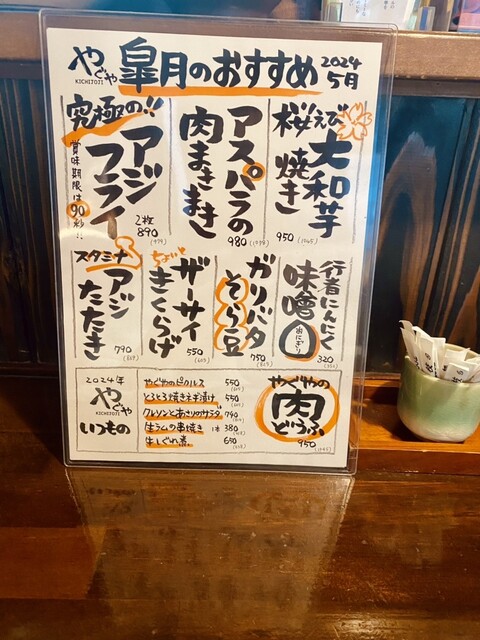 やぐや
KICHIJOJI
皐月のおすすめ
2024
5月
桜えび
大和芋
焼き
950
(1045)
アスパラの
肉まきまき
980
究極の!!
アジ
フライ
2枚
890
(979)
賞味期限は90秒!!
行者にんにく
味噌
おにぎり
320
ガリバタ
そら豆
750
(825)
ちょいと
ザーサイ
きくらげ
550
(605)
スタミナ
アジ
たたき
790
(869)
2024年
やぐや
KICHIJOJI
いつもの
やぐやのピクルス 550
とろとろ焼きねぎ漬け 550
クレソンとあさりのサラダ 790
生ラムの串焼き 1本 380
牛しぐれ煮 650
やぐやの
肉
どうふ
950
(1045)